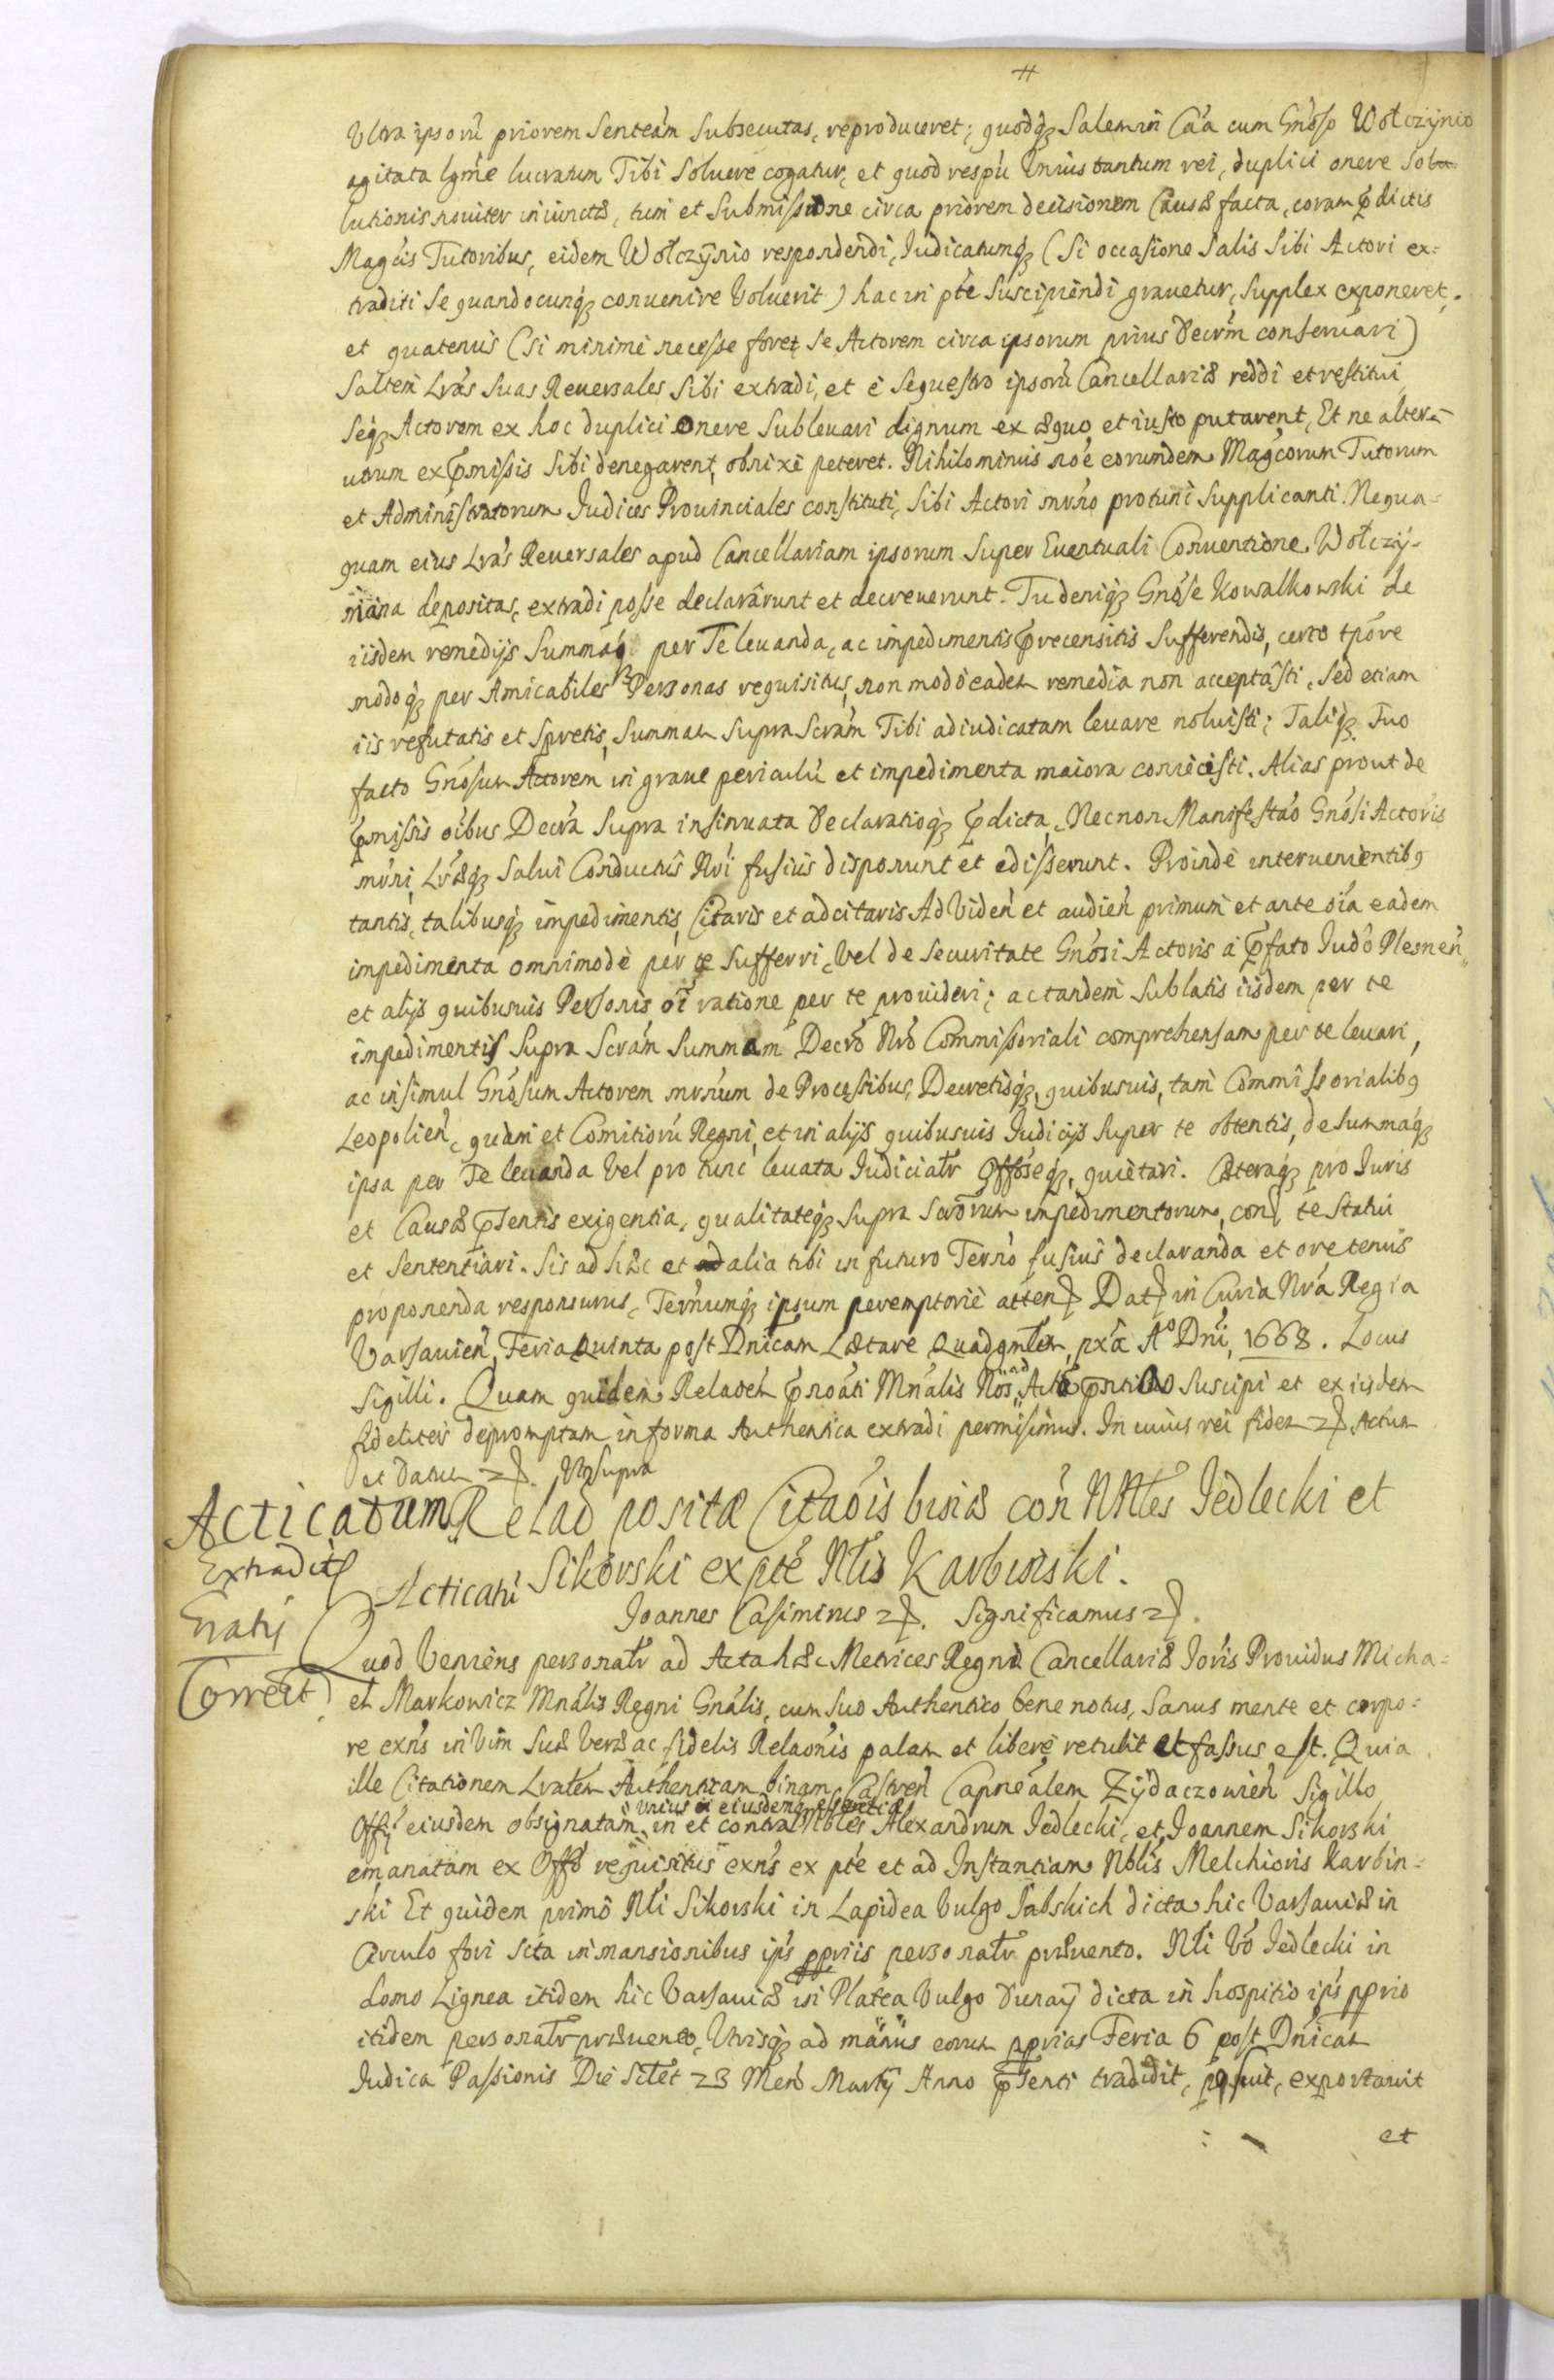 Vltra ipsorũ priorem Senteám Subsecutas, reproduceret; quodq́ꝫ Salem in Cáá cum Gnóso Wołczÿnio
agitata lgmé lucratum Tibi Soluere cogatur, et quod respũ Vnius tantum rei, duplici onere Solu
lutionis nouiter iniunctæ, tum et Submissione circa priorem decisionem Causæ facta, coram p̃dictis
Magcis Tutoribus, eidem Wołczÿnio respondendi, Iudicatumq́ꝫ (Si occasione Salis Sibi Actori ex=
traditi Se quandocunq́ꝫ conuenire Voluerit) hac in pté Suscipiendi grauetur, Supplex exponeret.
et quatenus (Si minimè necesse foret Se Actorem circa ipsorum prius Decrm conseruari)
Saltem Lrás Suas Reuersales Sibi extradi, et è Sequestro ipsorũ Cancellariæ reddi et restitui
Seq́ꝫ Actorem ex hoc duplici Onere Subleuari dignum ex æquo et iusto putarent, Et ne alter=
utrum ex p̃missis Sibi denegarent, obnixè peteret. Nihilominus noé eorundem Magcorum Tutorum
et Administratorum Iudices Prouinciales constituti, Sibi Actori mrno protunc Supplicanti Nequa=
quam eius Lrás Reuersales apud Cancellariam ipsorum Super Euentuali Conuentione Wołczÿ-
niana depositas, extradi posse declarârunt et decreuerunt. Tu deniq́ꝫ Gnóse Kowalkowski de
iisdem remedijs Summaq́ꝫ per Te leuanda, ac impedimentis p̃recensitis Sufferendis, certo tpóre
modoq́ꝫ per Amicabiles Personas requisitus, non modò eadem remedia non acceptâsti, Sed etiam
iis refutatis et Spretis, Summam Supra Scrám Tibi adiudicatam leuare noluisti; Taliq́ꝫ Tuo
facto Gnósum Actorem in graue periculũ et impedimenta maiora coniecisti. Alias prout de
p̃missis oíbus Decra Supra insinuata Declaratioq́ꝫ p̃dicta, Necnon Manifestáo Gnósi Actoris
mrni, Lræq́ꝫ Salui Conductûs Nri fusius disponunt et edisserunt. Proindè interuenientibꝰ
tantis, talibusq́ꝫ impedimentis, Citaris et adcitaris Ad Viden̄ et audien̄ primum et ante oía eadem
impedimenta omnimodè per te Sufferri, Vel de Securitate Gnósi Actoris à p̃fato Iudó Plesnen̄,
et alijs quibusuis Personis oí ratione per te prouideri; ac tandem Sublatis iisdem per te
impedimentis Supra Scrám Summam Decró Nró Commissoriali comprehensam per te leuari,
ac insimul Gnósum Actorem mrnum de Processibus, Decretisq́ꝫ quibusuis, tam Commissorialibꝰ
Leopolien̄, quàm et Comitiorũ Regni, et in alijs quibusuis Iudicijs Super te obtentis, de Summaq́ꝫ
ipsa per Te leuanda Vel pro tunc leuata Iudicialr Offóseq́ꝫ, quietari. Cæteraq́ꝫ pro Iuris
et Causæ p̃sentis exigentia, qualitateq́ꝫ Supra Scrórum impedimentorum, con̄ te Statui
et Sententiari. Sis ad hæc et ad alia tibi in futuro Terńo fusius declaranda et ore tenus
proponenda responsurus, Ternumq́ꝫ ipsum peremptoriè atten̄ Dat̄ in Curia Nrá Regia
Varsauien̄, Feria Quinta post Dnicam Lætare Quadgmlem, pxá Aº Dni, 1668. Locus
Sigilli. Quam quidem Relaoém p̃noáti Mnális Nós ad Actá p̃ntia Suscipi et ex iisdem
fideliter depromptam in forma Authentica extradi permisimus. In cuius rei fidem ꝛꝭ. Actum
et Datum ꝛꝭ. Vt Supra
Acticatum Relaó positæ Citaóis binæ con̄ NNles Iedlecki et
Extradit
Acticatũ Sikorski ex pté Nlis Karbinski.
Gratis
Ioannes Casimirus ꝛꝭ. Significamus ꝛꝭ.
Quod Veniens personalr ad Acta hæc Metrices Regni Cancellariæ Ióris Prouidus Micha=
Correct
el Markowicz Mnális Regni Gnális, cum Suo Authentico bene notus, Sanus mente et corpo=
re exńs in Vim Suæ Veræ ac fidelis Relaónis palam et liberè retulit et fassus est. Quia
ille Citationem Lralem Authenticam binam Castren̄ Capneálem Zÿdaczowien̄ Sigillo
Vnius eiusdemq́ꝫ essentiæ
Offÿ eiusdem obsignatam, in et contra Nbles Alexandrum Iedlecki, et Ioannem Sikorski
emanatam ex Offó requisitus exńs ex pté et ad Instantiam Nblis Melchioris Karbin=
ski Et quidem primò Nli Sikorski in Lapidea Vulgo Fabskich dicta hic Varsauiæ in
Circulo fori Sita in mansionibus ips ppriis personalr præuento. Nli Vó Iedlecki in
domo Lignea itidem hic Varsauiæ in Platea Vulgo Dunaÿ dicta in hospitio ips pprio
itidem personalr præuento, Vtrisq́ꝫ ad manus eorum pprias Feria 6 post Dnicam
Iudica Passionis Die Scilet 23 Men̄ Martÿ Anno p̃senti tradidit, posuit, exportauit
et